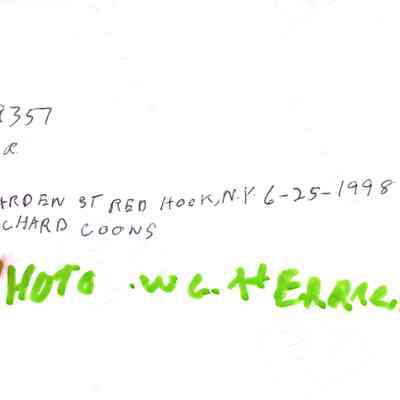 8357
R.
ARDEN ST RED HOOK, N.Y. 6-25-1998
CHARD COONS
HOTO .W C. HERRIC